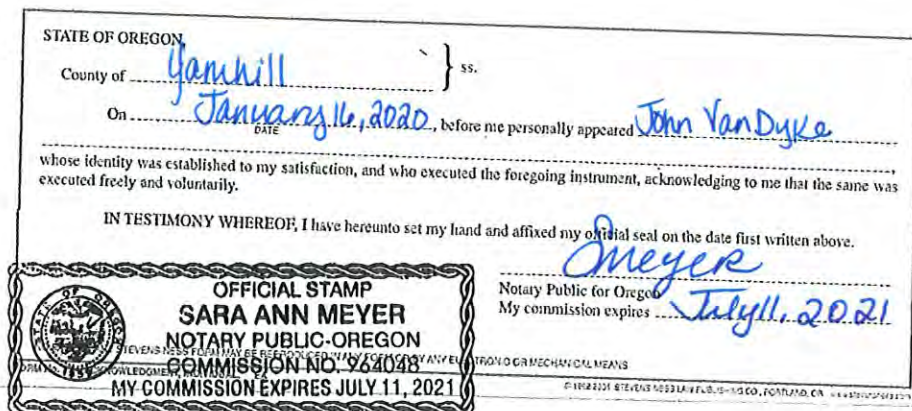 STATE OF OREGON,
County of Yamhill } ss.
On January 16, 2020, before me personally appeared John VanDyke
DATE
whose identity was established to my satisfaction, and who executed the foregoing instrument, acknowledging to me that the same was
executed freely and voluntarily.
IN TESTIMONY WHEREOF, I have hereunto set my hand and affixed my official seal on the date first written above.
SMeyer
Notary Public for Oregon
My commission expires July 11, 2021
STATE OF OREGON
1859
OFFICIAL STAMP
SARA ANN MEYER
NOTARY PUBLIC-OREGON
STEVENS-NESS FORM MAY BE REPRODUCED IN ANY FORM OR BY ANY ELECTRONIC OR MECHANICAL MEANS
COMMISSION NO. 964048
MY COMMISSION EXPIRES JULY 11, 2021
STEVENS-NESS LAW PUBLISHING CO., PORTLAND, OR